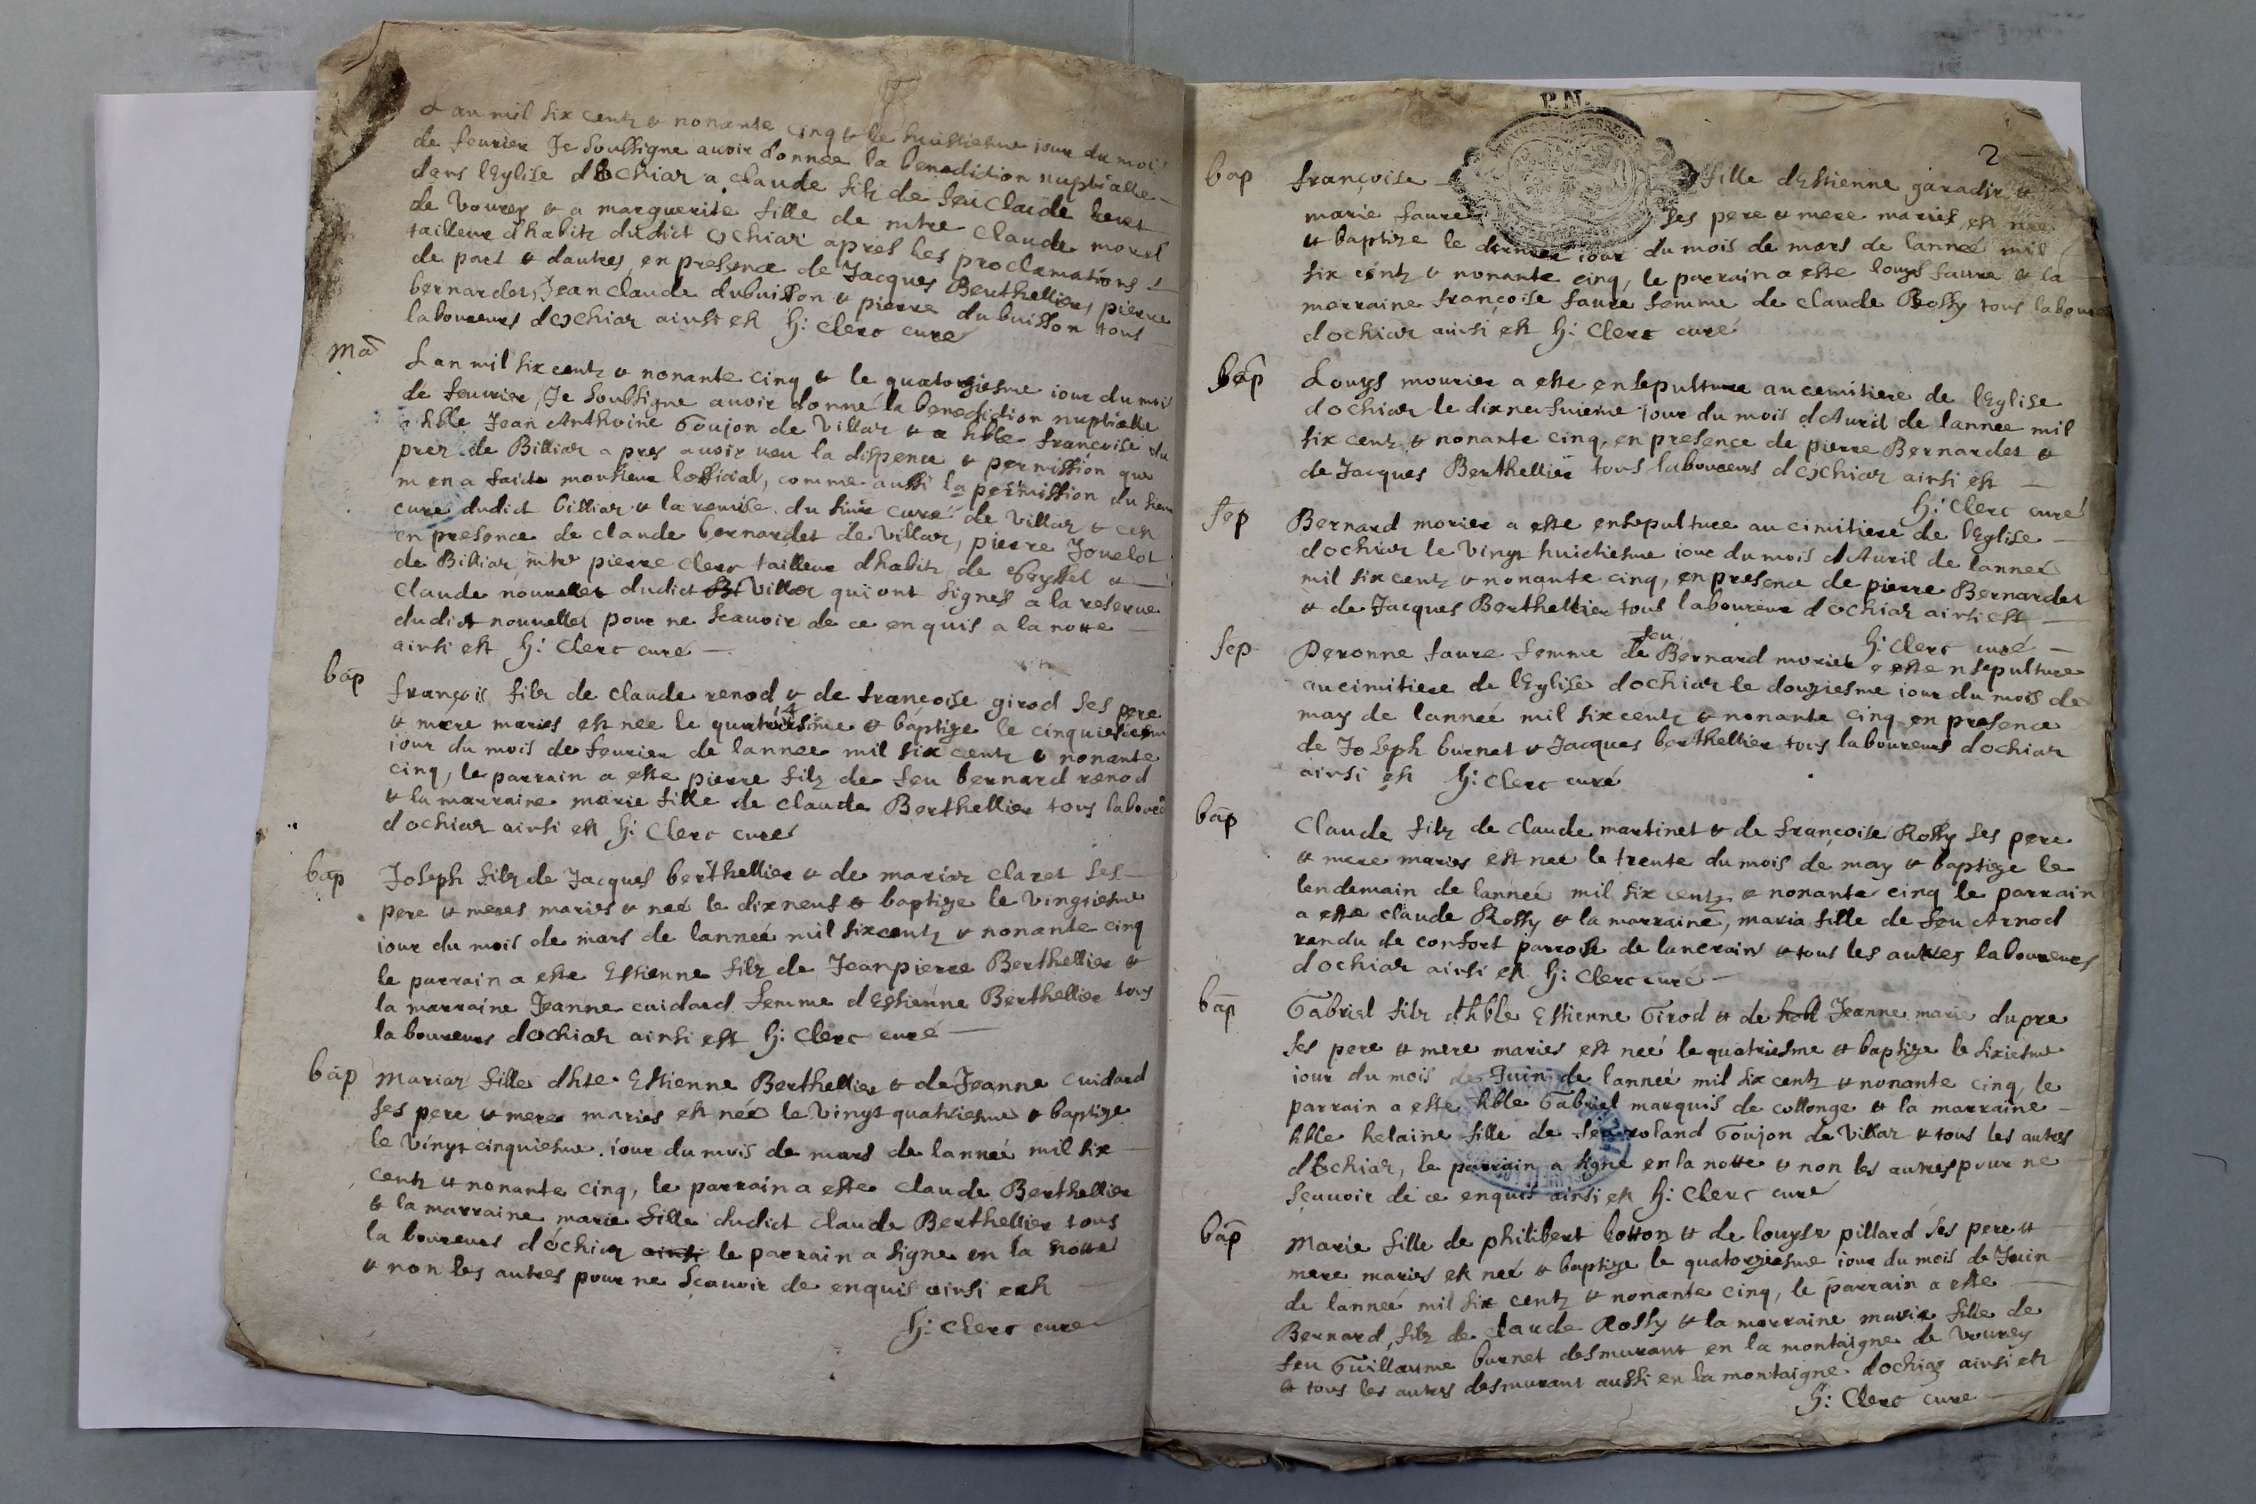 Lan mil six centz & nonante cinq & le huittiesme iour du mois
de feurier Je soubsigne auoir donnée la benediction nuptialle
dans lEglise dOchiaz a Claude filz de feu Claude
de Vourey & a marguerite fille de mtre Claude morel
tailleur dhabitz dudict Ochiaz apres les proclamations
de part & dautres, en presence de Jacques Berthellier, pierre
bernardet, Jean Claude dubuisson & pierre dubuisson tous
laboureurs dochiaz ainsi est h: Clerc curé
Ma
Lan mil six centz & nonante cinq & le quatorziesme iour du mois
de feurier, Je soubsigne auoir donné la benediction nuptialle
a hble Jean Anthoine Goujon de Villar & a hble francoise du
prez de Billiaz apres auoir veu la dispence & permission que
m en a faicte monsieur lofficial, comme aussi la permission du sieur
curé dudict billiaz & la remise du sieur curé de Villar & cest
en presence de claude bernardet de Villar, pierre Jouelot
de Billiaz, mtre pierre Clerc tailleur dhabitz de Seyssel &
Claude nouuellet dudict Villar qui ont signes a la reserue
dudict nouuellet pour ne scauoir de ce enquis a la notte
ainsi est h: Clerc curé
bap
françois filz de claude renod & de françoise girod ses pere
& mere maries est née le quatriesme & baptize le cinquiesme
iour du mois de feurier de lannee mil six centz & nonante
cinq, le parrain a este pierre filz de feu bernard renod
& la marraine marie fille de claude Berthellier tous laboure
dochiaz ainsi est h: Clerc curé
bap
Joseph filz de Jacques berthellier & de mariaz claret ses
pere & meres maries & neé le dixneuf & baptize le vingtiesme
iour du mois de mars de lanneé mil six centz & nonante cinq
le parrain a este Estienne filz de Jeanpierre Berthellier &
la marraine Jeanne cuidard femme dEstienne Berthellier tous
laboureurs dochiaz ainsi est h: Clerc curé
bap
Mariaz fille dhte Estienne Berthellier & de Jeanne cuidard
ses pere & mere maries est née le vingt quatriesme & baptize
le vingt cinquiesme iour du mois de mars de lanneé mil six
centz & nonante cinq, le parrain a este claude Berthellier
& la marraine marie fille dudict claude Berthellier tous
laboureurs dochiaz ainsi le parrain a signe en la notte
& non les autres pour ne scauoir de enquis ainsi est
h: Clerc curé
P.N.
2
bap
françoise fille dEstienne garadir &
marie faure ses pere & mere maries est née
& baptize le dernier iour du mois de mars de lanneé mil
six centz & nonante cinq, le parrain a este louys faure & la
marraine françoise faure femme de claude Rossy tous laboure
dochiaz ainsi est h: Clerc curé
bap
Louys mourier a este ensepulture au cemitiere de lEglise
dochiaz le dixneufuieme iour du mois dAuril de lannee mil
six centz & nonante cinq en presence de pierre Bernardet &
de Jacques Berthellier tous laboureurs dochiaz ainsi est
h: Clerc curé
sep
Bernard morier a este ensepulture au cimitiere de lEglise
dochiaz le vingt huictiesme iour du mois dAuril de lanneé
mil six centz & nonante cinq, en presence de pierre Bernardet
& de Jacques Berthellier tous laboureur dochiaz ainsi est
h: Clerc curé
sep
Peronne faure femme de feu Bernard morier a este ensepulture
au cimitiere de lEglise dochiaz le douziesme iour du mois de
may de lanneé mil six centz & nonante cinq en presence
de Joseph burnet & Jacques berthellier tous laboureurs dochiaz
ainsi est h: Clerc curé
bap
Claude filz de claude martinet & de françoise Rossy ses pere
& mere maries est neé le trente du mois de may & baptize le
lendemain de lanneé mil six centz & nonante cinq le parrain
a este claude Rossy & la marraine, maria fille de feu Arnod
randu de confort parroisse de lancrains & tous les autres laboureurs
dochiaz ainsi est h: Clerc curé
bap
Gabriel filz dhble Estienne Girod & de hobl Jeanne marie dupre
ses pere & mere maries est neé le quatriesme & baptize le sixiesme
iour du mois de Juin de lanneé mil six centz & nonante cinq, le
parrain a este hble Gabriel marquis de collonge & la marraine
hble helaine fille de feu roland Goujon de Villar & tous les autres
dOchiaz, le parrain a signe en la notte & non les autres pour ne
scauoir de ce enquis ainsi est h: Clerc curé
bap
Marie fille de philibert botton & de louyse pillard ses pere &
mere maries est neé & baptize le quatorziesme iour du mois de Juin
de lanneé mil six centz & nonante cinq, le parrain a este
Bernard filz de claude Rossy & la marraine maria fille de
feu Guillaume burnet desmurant en la montaigne de vourey
& tous les autres desmurant aussi en la montaigne dochiaz ainsi est
h: Clerc curé